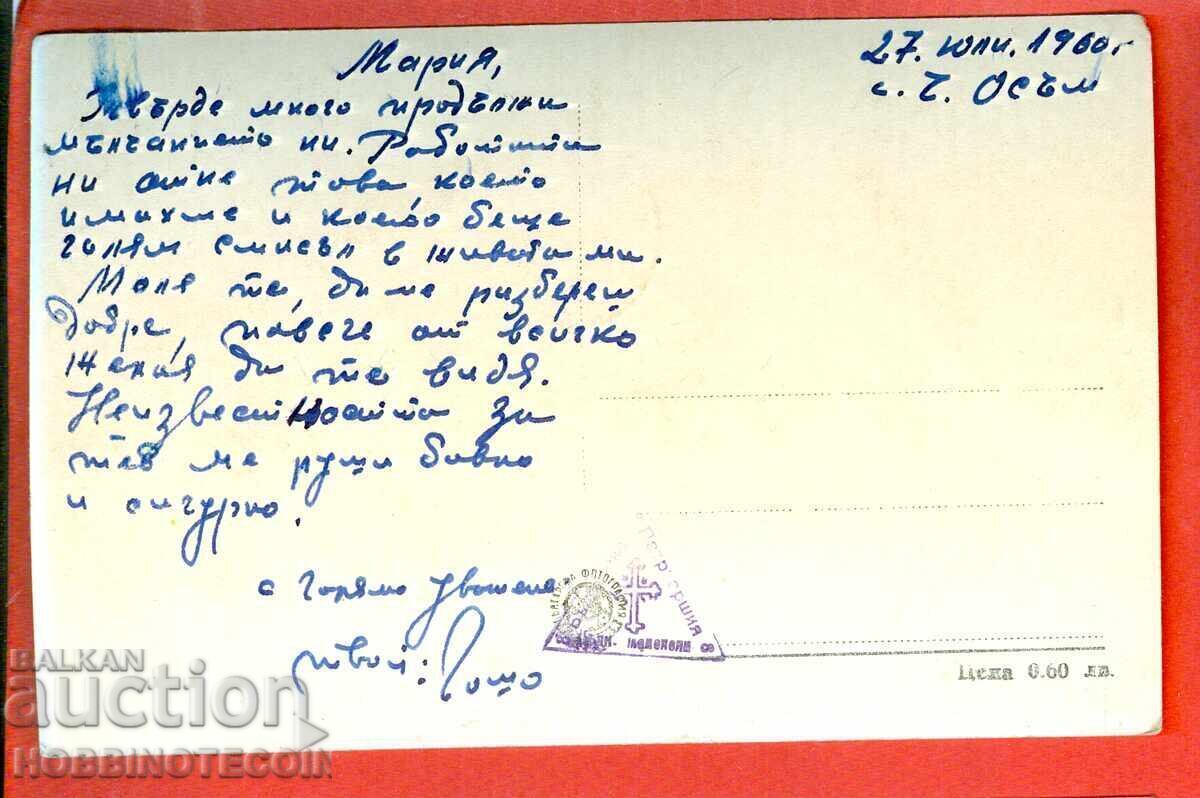 27. юли. 1960 г
с. Ч. Осъм
Мария,
Твърде много продължи
мълчанието ни. Работата
ни отне това което
имахме и което беше
голям смисъл в живота ми.
Моля те, да ме разбереш
добре, повече от всичко
желая да те видя.
Неизвестността за
теб ме руши бавно
и сигурно.
с голямо уважение
твой: Гошо
Патриаршия
БЪЛГАРСКА ФОТОГРАФИЯ
Цена 0.60 лв.
BALKAN
auction
HOBBINOTECOIN